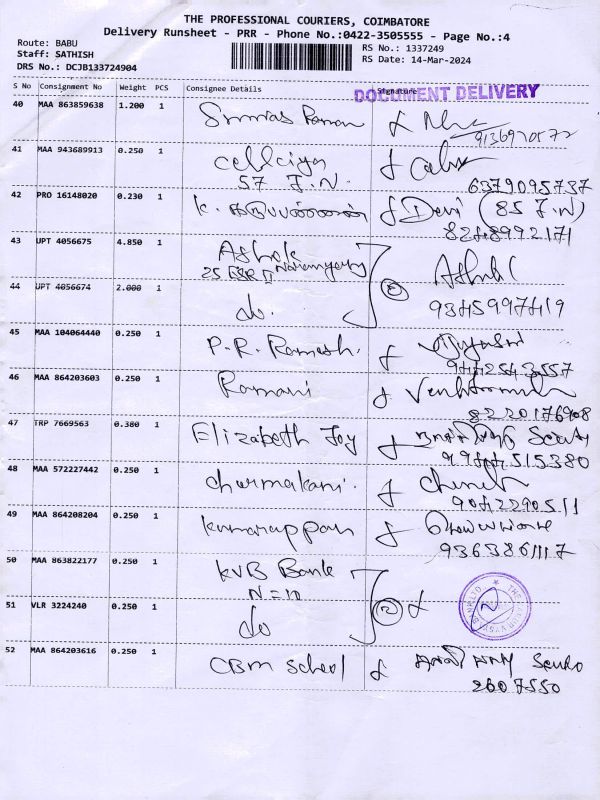 THE PROFESSIONAL COURIERS, COIMBATORE
Delivery Runsheet - PRR - Phone No.:0422-3505555 - Page No.:4
Route: BABU
Staff: SATHISH
DRS No.: DCJB133724904
RS No.: 1337249
RS Date: 14-Mar-2024
S No Consignment No Weight PCS Consignee Details Signature
DOCUMENT DELIVERY
40 MAA 863859638 1.200 1 Srinivas Raman
41 MAA 943689913 0.250 1
57 J.N. 6379095737
42 PRO 16148020 0.230 1 K. Devi (85 J.N)
8248992171
43 UPT 4056675 4.850 1 Ashok
25
44 UPT 4056674 2.000 1 do. 2 9345997419
45 MAA 104064440 0.250 1 P.R. Ramesh.
9442543557
46 MAA 864203603 0.250 1 Ramani
8220176908
47 TRP 7669563 0.380 1 Elizabeth Joy
9944515380
48 MAA 572227442 0.250 1
9042290511
49 MAA 864208204 0.250 1 Kumarappan
9363861117
50 MAA 863822177 0.250 1 KVB Bank
N=10
51 VLR 3224240 0.250 1 do 2
52 MAA 864203616 0.250 1 CBM School
2607550